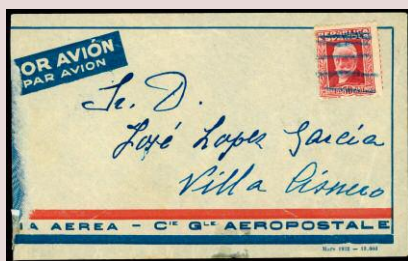 POR AVIÓN
PAR AVION
Sr. D.
José Lopez García
Villa Cisnero
IA AEREA - CIE GLE AEROPOSTALE